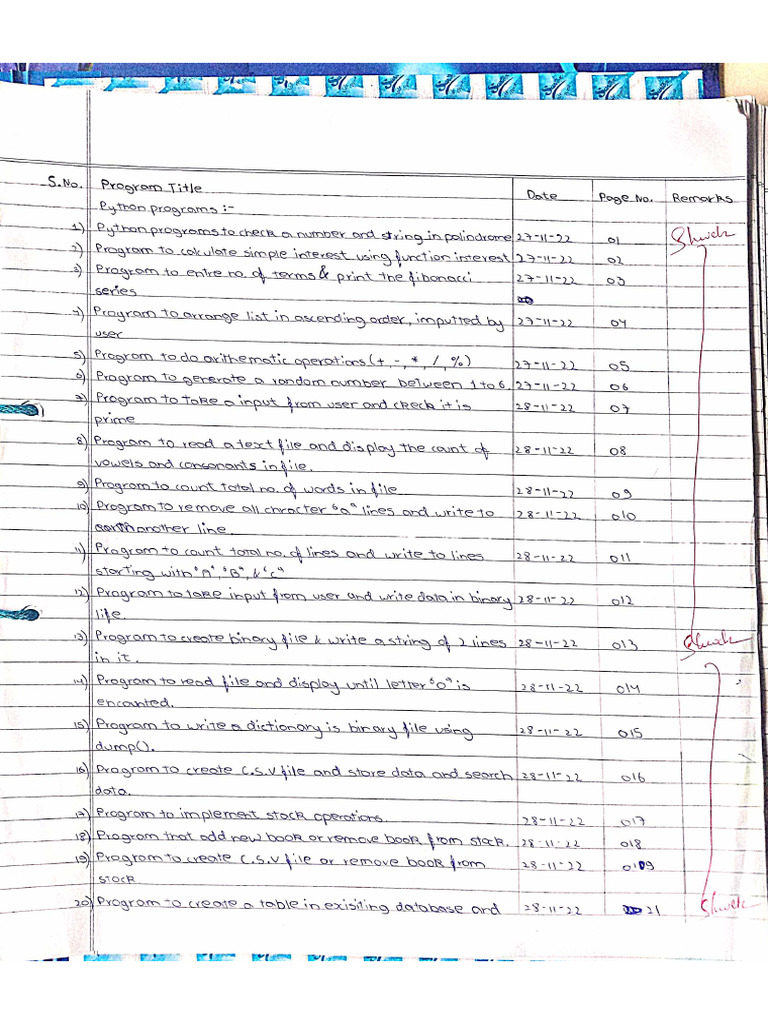 S.No. Program Title Date Page No. Remarks
Python programs :-
1) Python programs to check a number and string in palindrome 27-11-22 01
2) Program to calculate simple interest using function interest 27-11-22 02
3) Program to entre no. of terms & print the fibonacci 27-11-22 03
series
4) Program to arrange list in ascending order, imputted by 27-11-22 04
user
5) Program to do arithematic operations (+, -, *, /, %) 27-11-22 05
6) Program to generate a random number between 1 to 6. 27-11-22 06
7) Program to take a input from user and check it is 28-11-22 07
prime
8) Program to read a text file and display the count of 28-11-22 08
vowels and consonants in file.
9) Program to count total no. of words in file 28-11-22 09
10) Program to remove all chracter "a" lines and write to 28-11-22 010
another line.
11) Program to count total no. of lines and write to lines 28-11-22 011
starting with "A", "B", & "C"
12) Program to take input from user and write data in binary 28-11-22 012
life.
13) Program to create binary file & write a string of 2 lines 28-11-22 013
in it.
14) Program to read file and display until letter "o" is 28-11-22 014
encounted.
15) Program to write a dictionary is binary file using 28-11-22 015
dump().
16) Program to create C.S.V file and store data and search 28-11-22 016
data.
17) Program to implement stack operations. 28-11-22 017
18) Program that add new book or remove book from stack. 28-11-22 018
19) Program to create C.S.V file or remove book from 28-11-22 019
stack
20) Program to create a table in exisiting database and 28-11-22 21